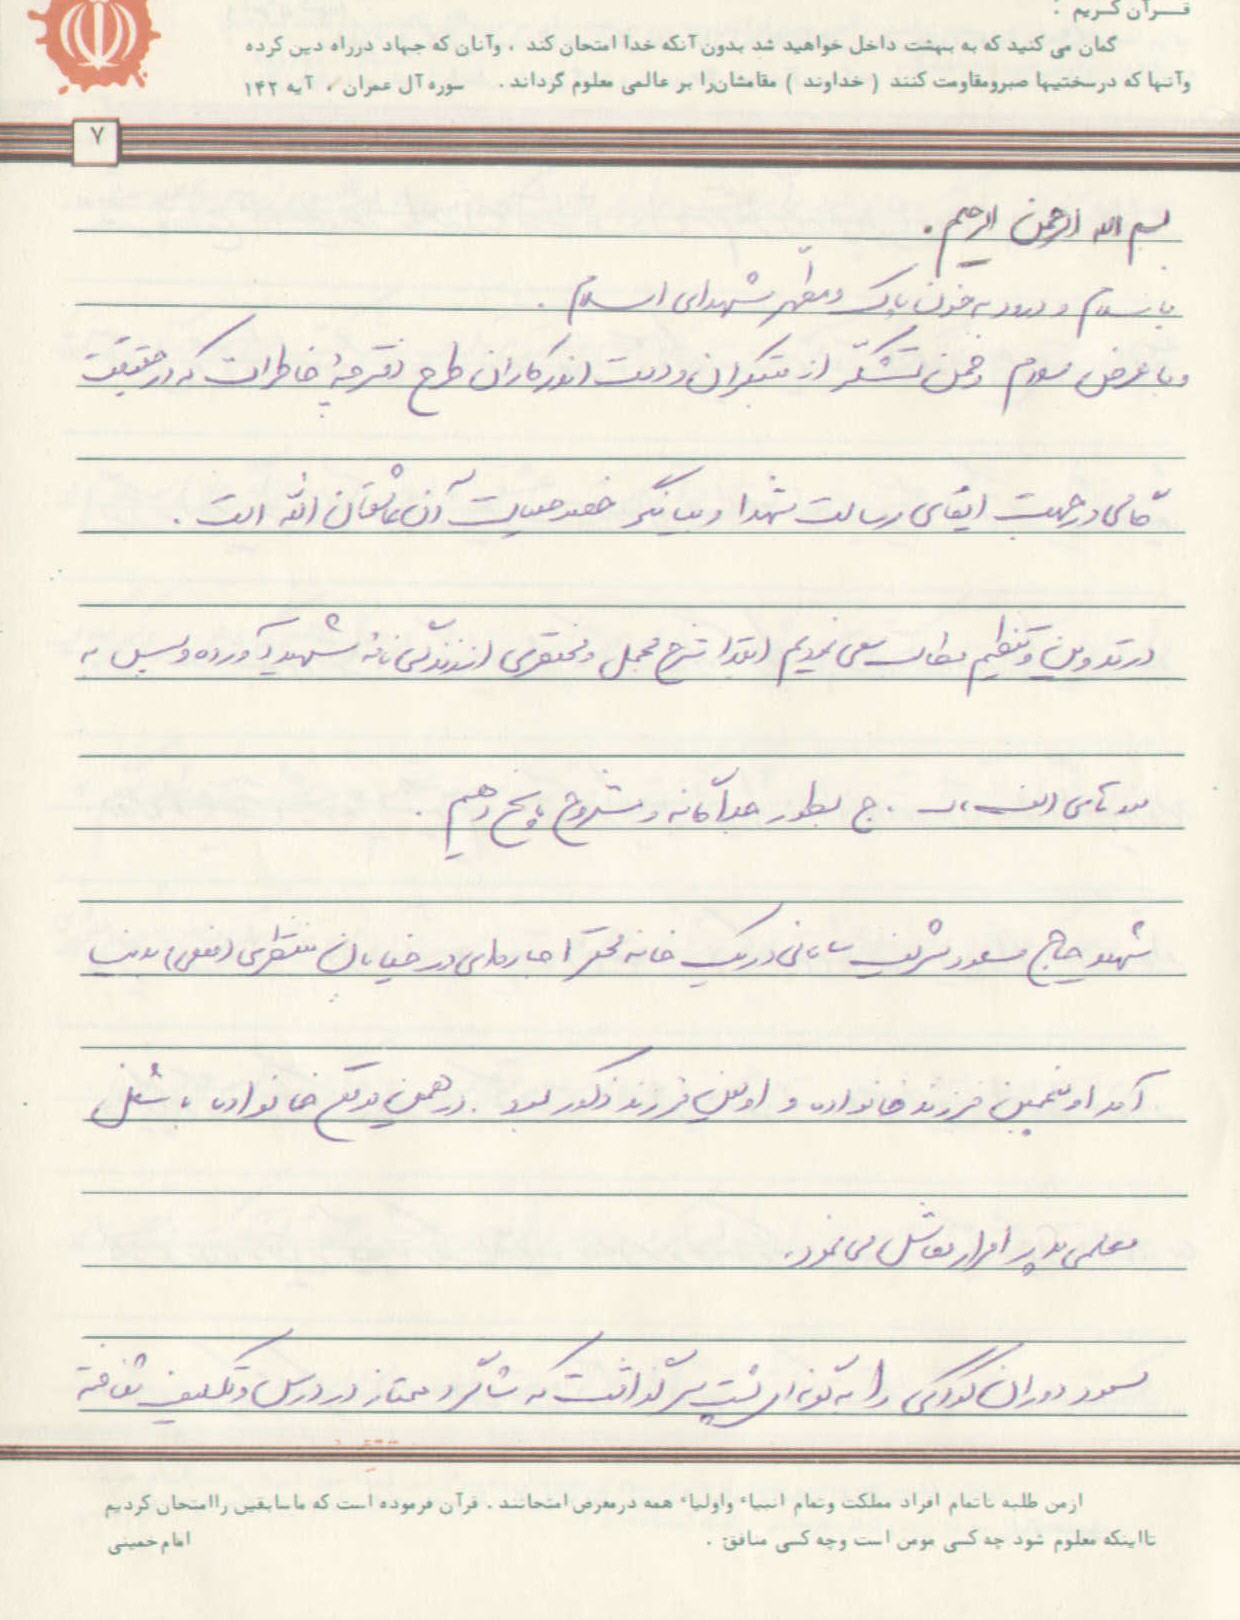 قـــرآن کـــریم :
گمان می کنید که به بهشت داخل خواهید شد بدون آنکه خدا امتحان کند ، وآنان که جهاد درراه دین کرده
وآنها که درسختیها صبرومقاومت کنند ( خداوند ) مقامشان‌را بر عالمی معلوم گرداند . سوره آل عمران ، آیه ۱۴۲
۷
بسم الله الرحمن الرحیم .
با سلام و درود به خون پاک و مطهر شهدای اسلام .
و با عرض سلام و ضمن تشکّر از مبتکران و دست اندرکاران طرح دفترچهٔ خاطرات که در حقیقت
گامی در جهت ایفای رسالت شهدا و بیانگر خصوصیات آن عاشقان الله است .
در تدوین و تنظیم مطالب سعی نمودیم ابتدا شرح مجمل و مختصری از زندگی نامهٔ شهید آورده و سپس به
سوالهای الف ، ب ، ج بطور جداگانه و مشروح پاسخ دهیم .
شهید حاج مسعود شریف سامانی در یک خانه محقر اجاره‌ای در خیابان منتظری (فعلی) بدنیا
آمد او پنجمین فرزند خانواده و اولین فرزند ذکور بود . در همین موقع خانواده با شغل
معلمی پدر امرار معاش می نمود .
مسعود دوران کودکی را به گونه ای پشت سر گذاشت که شاگرد ممتاز در درس و تکلیف
ازمن طلبه تاتمام افراد مملکت وتمام انبیاء واولیاء همه درمعرض امتحانند . قرآن فرموده است که ماسابقین راامتحان کردیم
تااینکه معلوم شود چه کسی مومن است وچه کسی منافق . امام‌خمینی